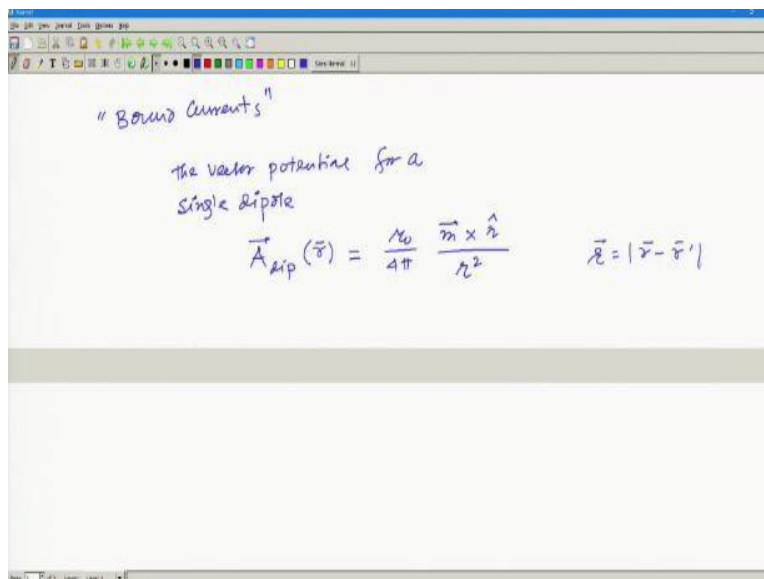 "Bound Currents"
the vector potential for a
single dipole
$\vec{A}_{dip}(\bar{r}) = \frac{\mu_0}{4\pi} \frac{\vec{m} \times \hat{r}}{r^2}$ $\vec{r} = |\bar{r} - \bar{r}'|$